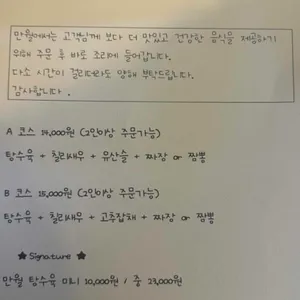 만월에서는 고객님께 보다 더 맛있고 건강한 음식을 제공하기
위해 주문 후 바로 조리에 들어갑니다.
다소 시간이 걸리더라도 양해 부탁드립니다.
감사합니다.
A 코스 14,000원 (2인이상 주문가능)
탕수육 + 칠리새우 + 유산슬 + 짜장 or 짬뽕
B 코스 15,000원 (2인이상 주문가능)
탕수육 + 칠리새우 + 고추잡채 + 짜장 or 짬뽕
★ Signature ★
만월 탕수육 미니 10,000원 / 중 23,000원